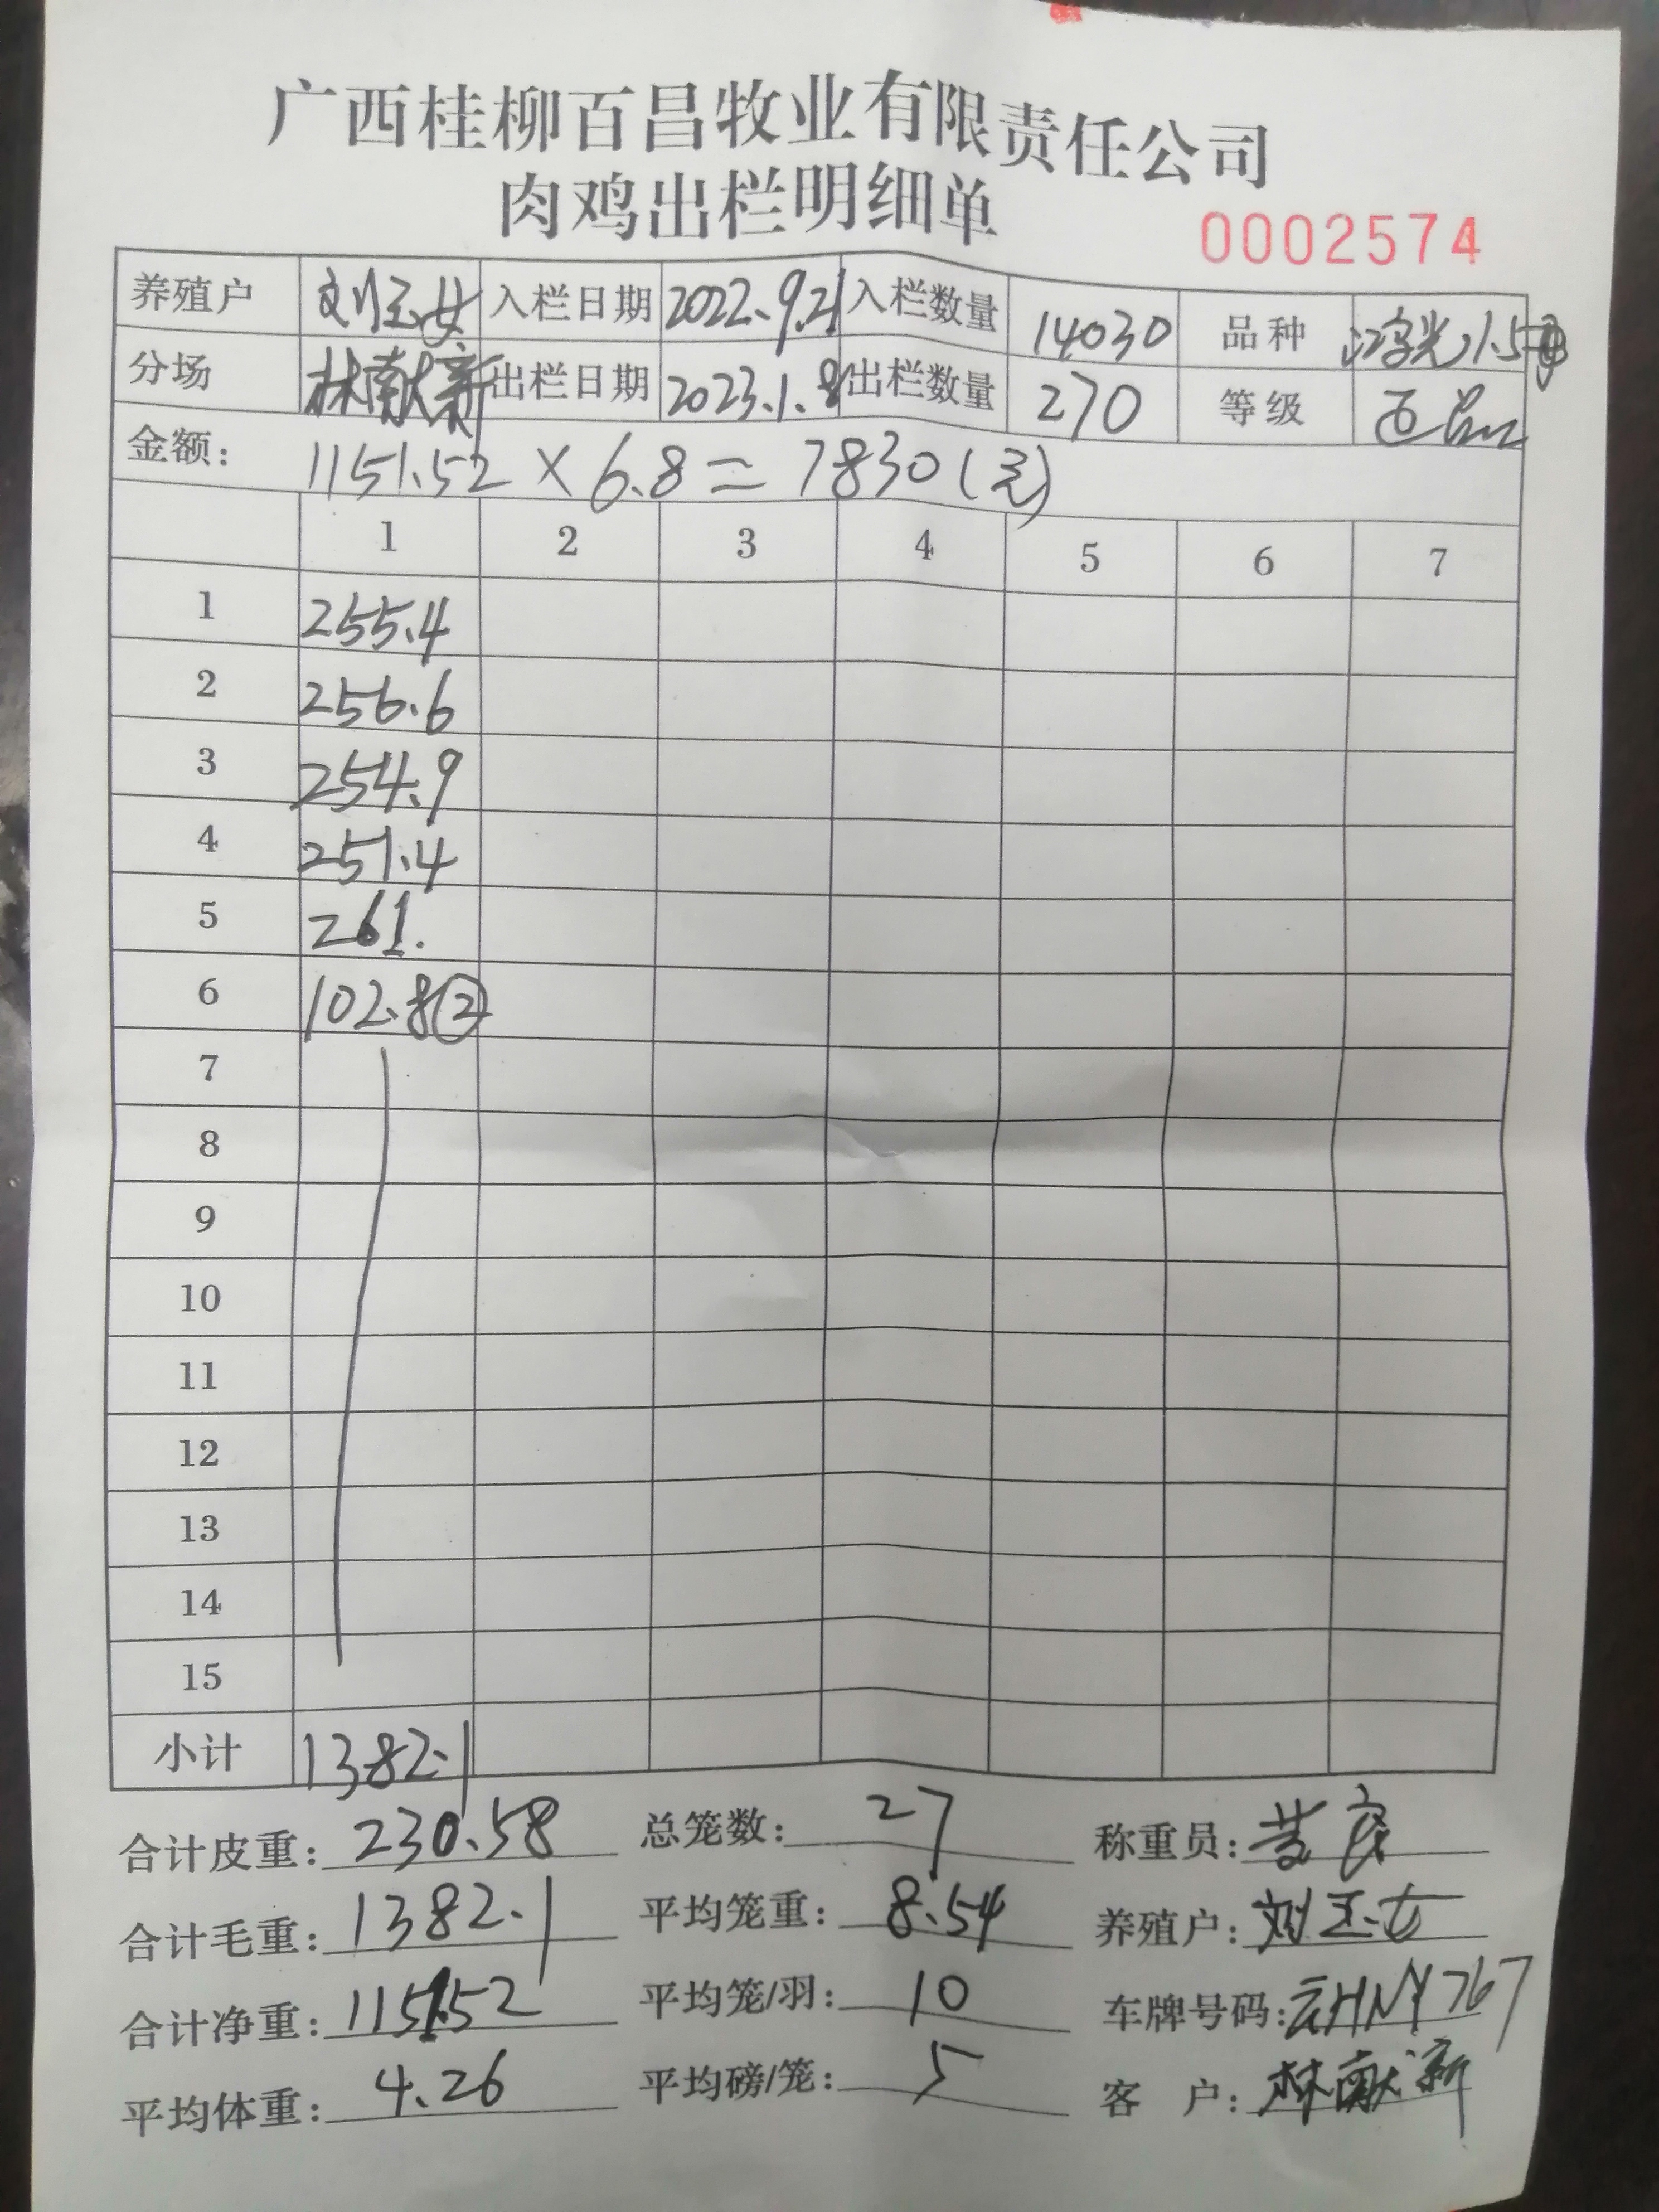 广西桂柳百昌牧业有限责任公司
肉鸡出栏明细单
0002574
养殖户 刘玉女 入栏日期 2022.9.21 入栏数量 14030 品种
分场 林献新 出栏日期 2023.1.8 出栏数量 270 等级
金额: 1151.52 × 6.8 = 7830(元)
1 2 3 4 5 6 7
1 255.4
2 256.6
3 254.9
4 251.4
5 261.
6 102.8②
7
8
9
10
11
12
13
14
15
小计 1382.1
合计皮重: 230.58 总笼数: 27 称重员:
合计毛重: 1382.1 平均笼重: 8.54 养殖户: 刘玉女
合计净重: 1151.52 平均笼/羽: 10 车牌号码: 云HNY767
平均体重: 4.26 平均磅/笼: 5 客 户: 林献新